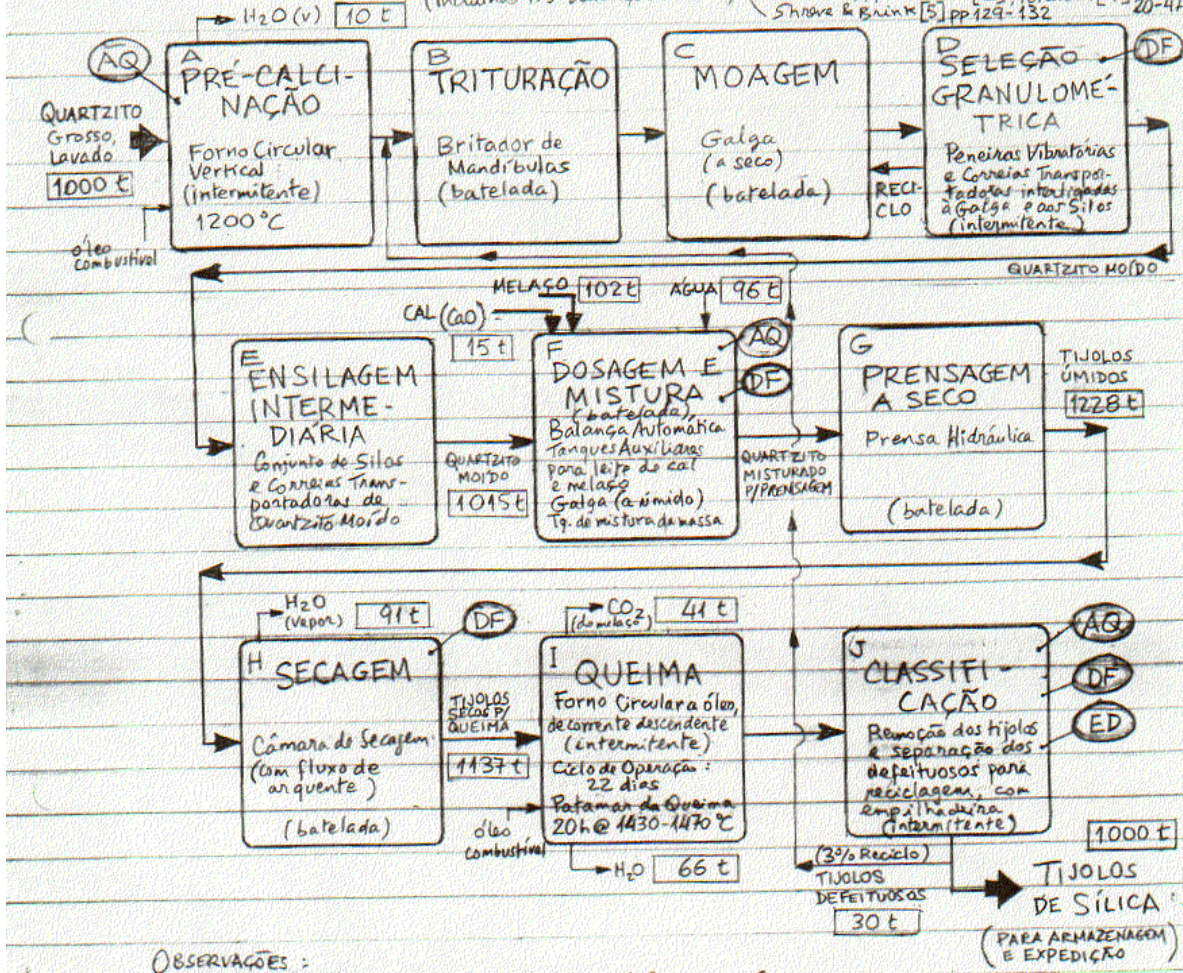 Shreve & Brink [5] pp 129-132
20-47
H2O (v) 10 t
AQ
QUARTZITO
Grosso,
Lavado
1000 t
óleo
combustível
A
PRÉ-CALCI-
NAÇÃO
Forno Circular
Vertical
(intermitente)
1200 °C
B
TRITURAÇÃO
Britador de
Mandíbulas
(batelada)
C
MOAGEM
Galga
(a seco)
(batelada)
RECI-
CLO
D
SELEÇÃO
GRANULOMÉ-
TRICA
Peneiras Vibratórias
e Correias Transpor-
tadoras interligadas
à Galga e aos Silos
(intermitente)
DF
QUARTZITO MOÍDO
MELAÇO 102 t
ÁGUA 96 t
CAL (CaO)
15 t
E
ENSILAGEM
INTERME-
DIÁRIA
Conjunto de Silos
e Correias Trans-
portadoras de
Quartzito Moído
QUARTZITO
MOÍDO
1015 t
F
DOSAGEM E
MISTURA
(batelada),
Balança Automática
Tanques Auxiliares
para leite de cal
e melaço
Galga (a úmido)
Tq. de mistura da massa
AQ
DF
QUARTZITO
MISTURADO
P/PRENSAGEM
G
PRENSAGEM
A SECO
Prensa Hidráulica
(batelada)
TIJOLOS
ÚMIDOS
1228 t
H2O
(vapor) 91 t
DF
H
SECAGEM
Câmara de Secagem
(com fluxo de
ar quente)
(batelada)
TIJOLOS
SECOS P/
QUEIMA
1137 t
óleo
combustível
CO2
(do melaço) 41 t
I
QUEIMA
Forno Circular a óleo,
de corrente descendente
(intermitente)
Ciclo de Operação:
22 dias
Patamar da Queima
20h @ 1430-1470 °C
H2O 66 t
J
CLASSIFI-
CAÇÃO
Remoção dos tijolos
e separação dos
defeituosos para
reciclagem, com
empilhadeira
(intermitente)
AQ
DF
ED
(3% Reciclo)
TIJOLOS
DEFEITUOSOS
30 t
1000 t
TIJOLOS
DE SÍLICA
(PARA ARMAZENAGEM
E EXPEDIÇÃO)
OBSERVAÇÕES: